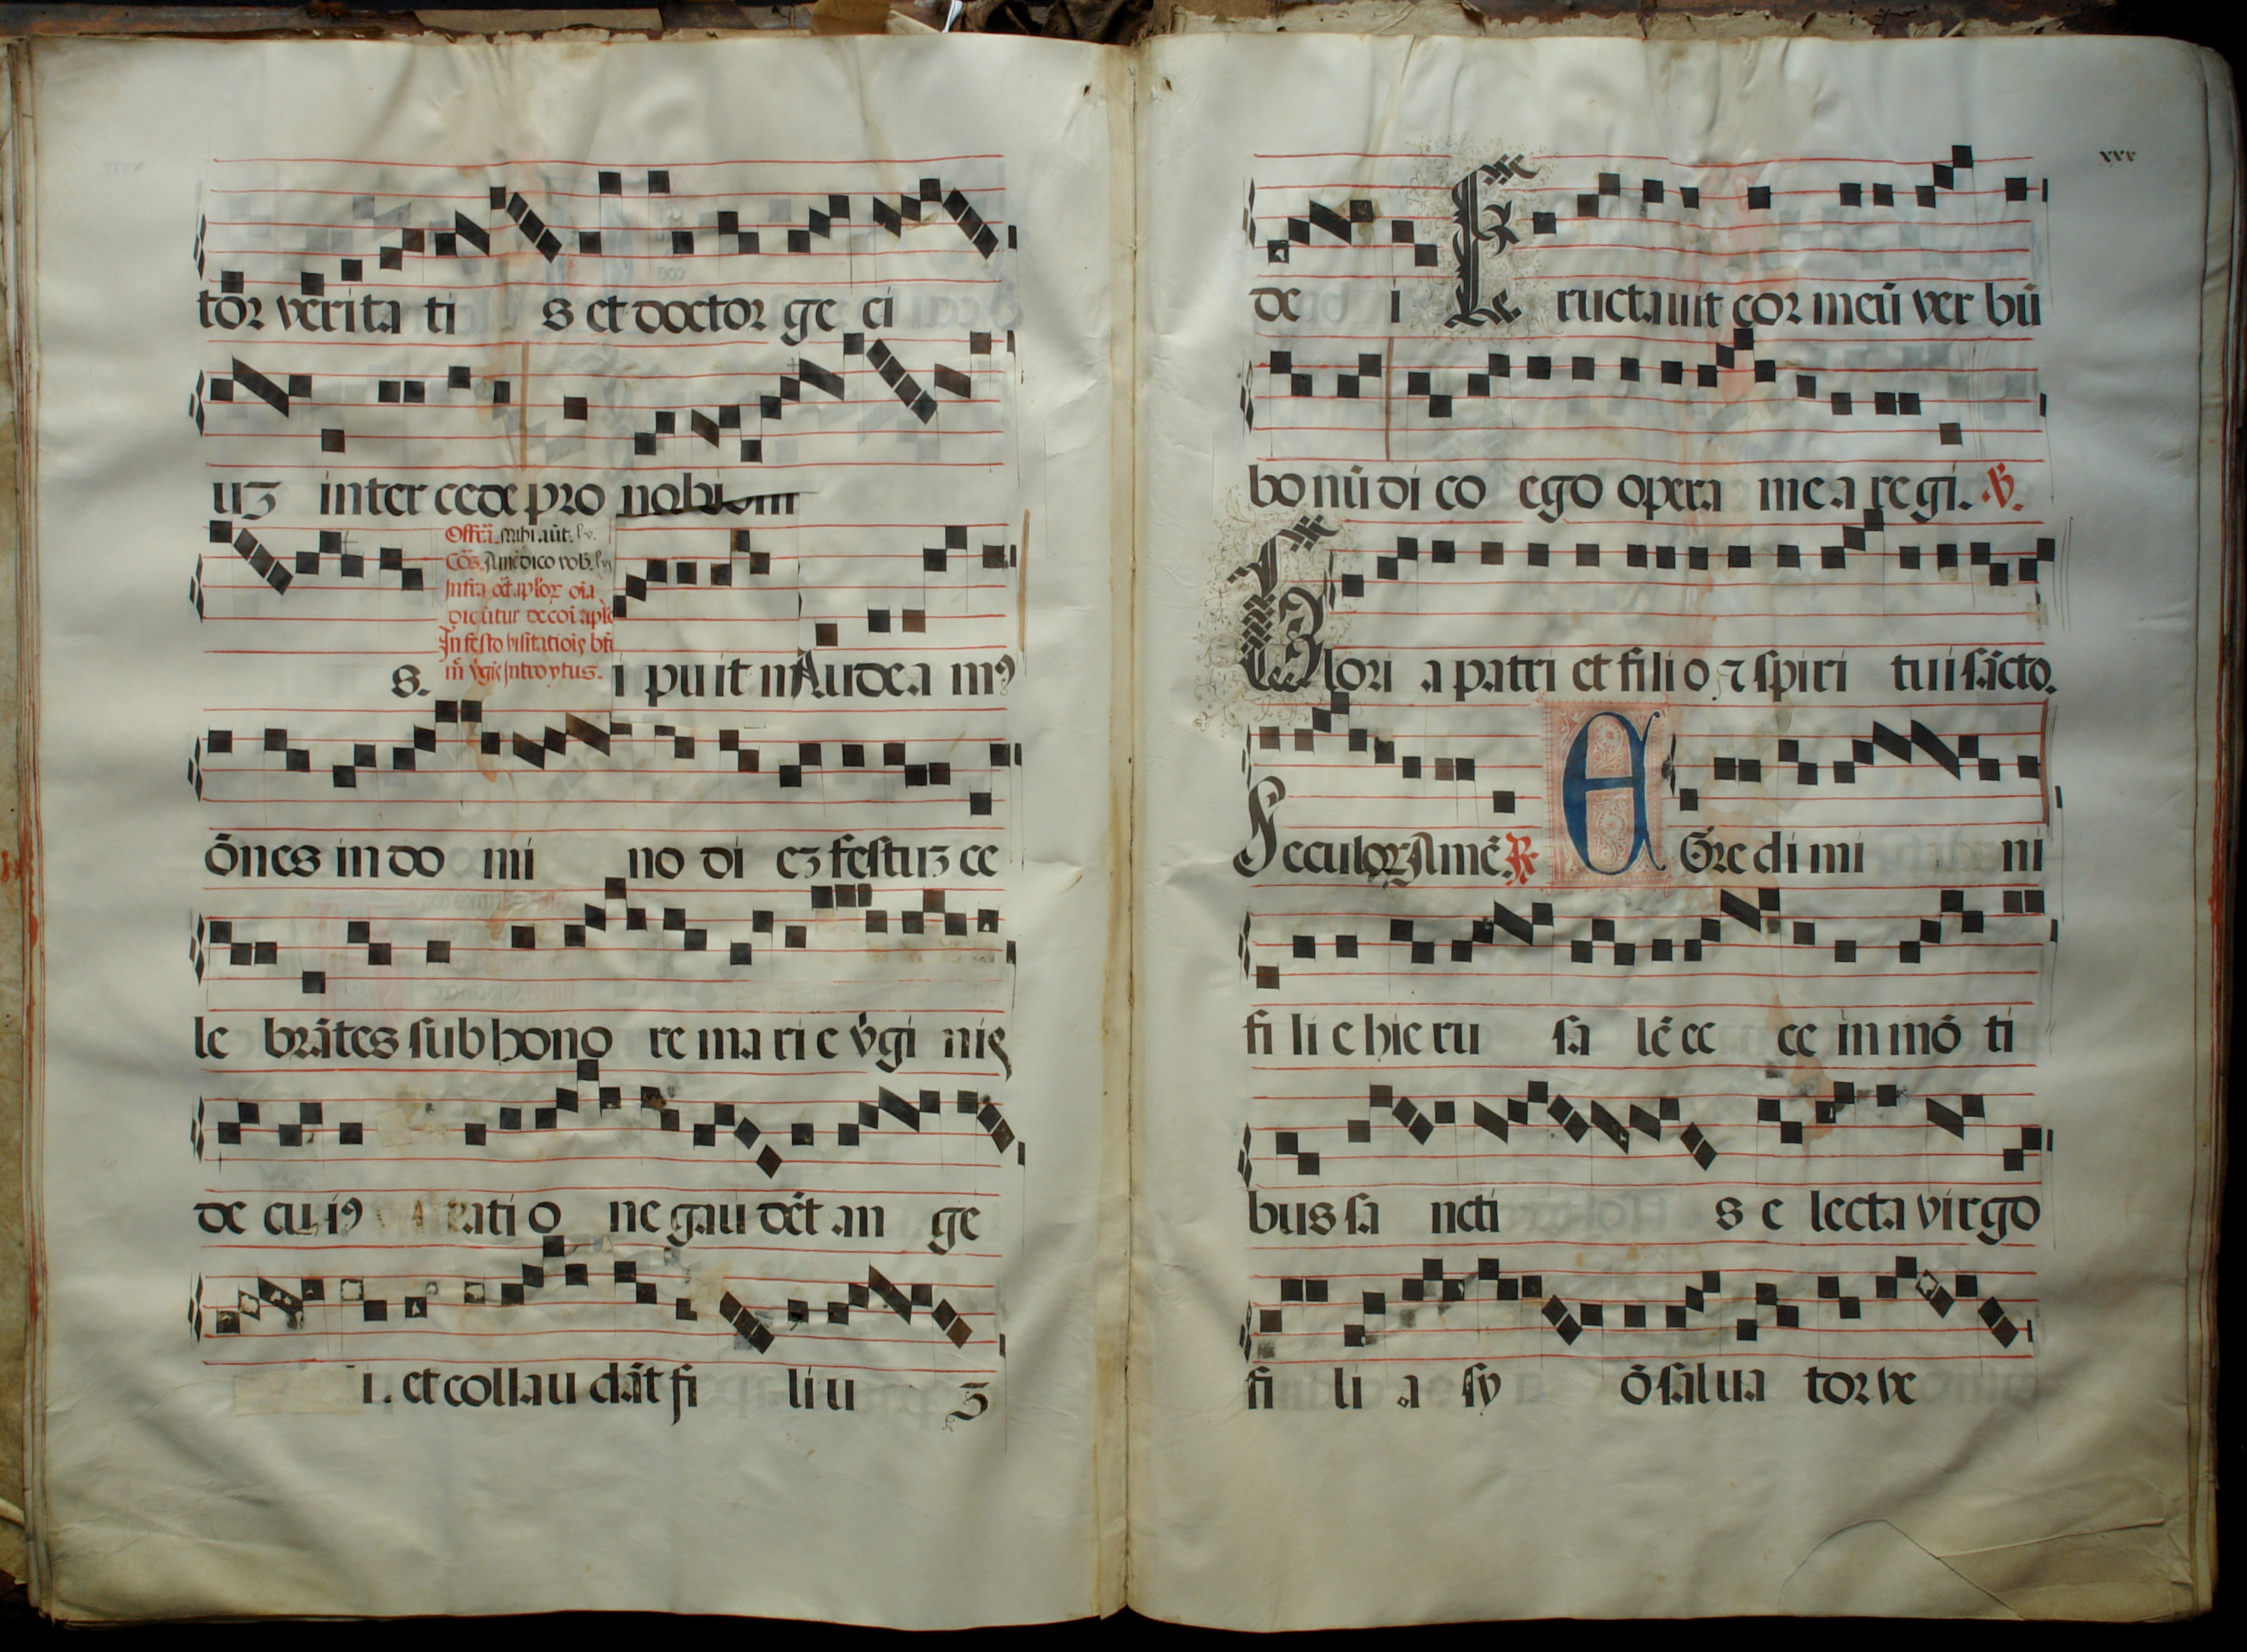 tor verita ti s et doctor ge ci
uʒ inter cede pro nobi
Offm̄. Mihi aūt. lv.
Cōō. Amē dico vob. lvi
Infra oct̄. aplōꝝ oīa
dicūtur de coī aplō
In festo visitatiōis btē
m̄ v̄gīs Introytus.
s. i puit m Audea mꝰ
ōnes in do mi no di eʒ festuʒ ce
le brātes sub hono re ma ri e v̄gi nis
de cu iꝰ rati o ne gau dēt an ge
i. et collau dāt fi li u ʒ
xxx
de i Eructauit cor meū ver bū
bo nū di co ego opera me a regi. ℣.
Glori a patri et fili o ⁊ spiri tui sācto.
Seculoꝝ Amē. ℟. E Gre di mi ni
fi li e hie ru sa lē ec ce in mō ti
bus sa ncti s e lecta virgo
fi li a sy ō salua tor ve